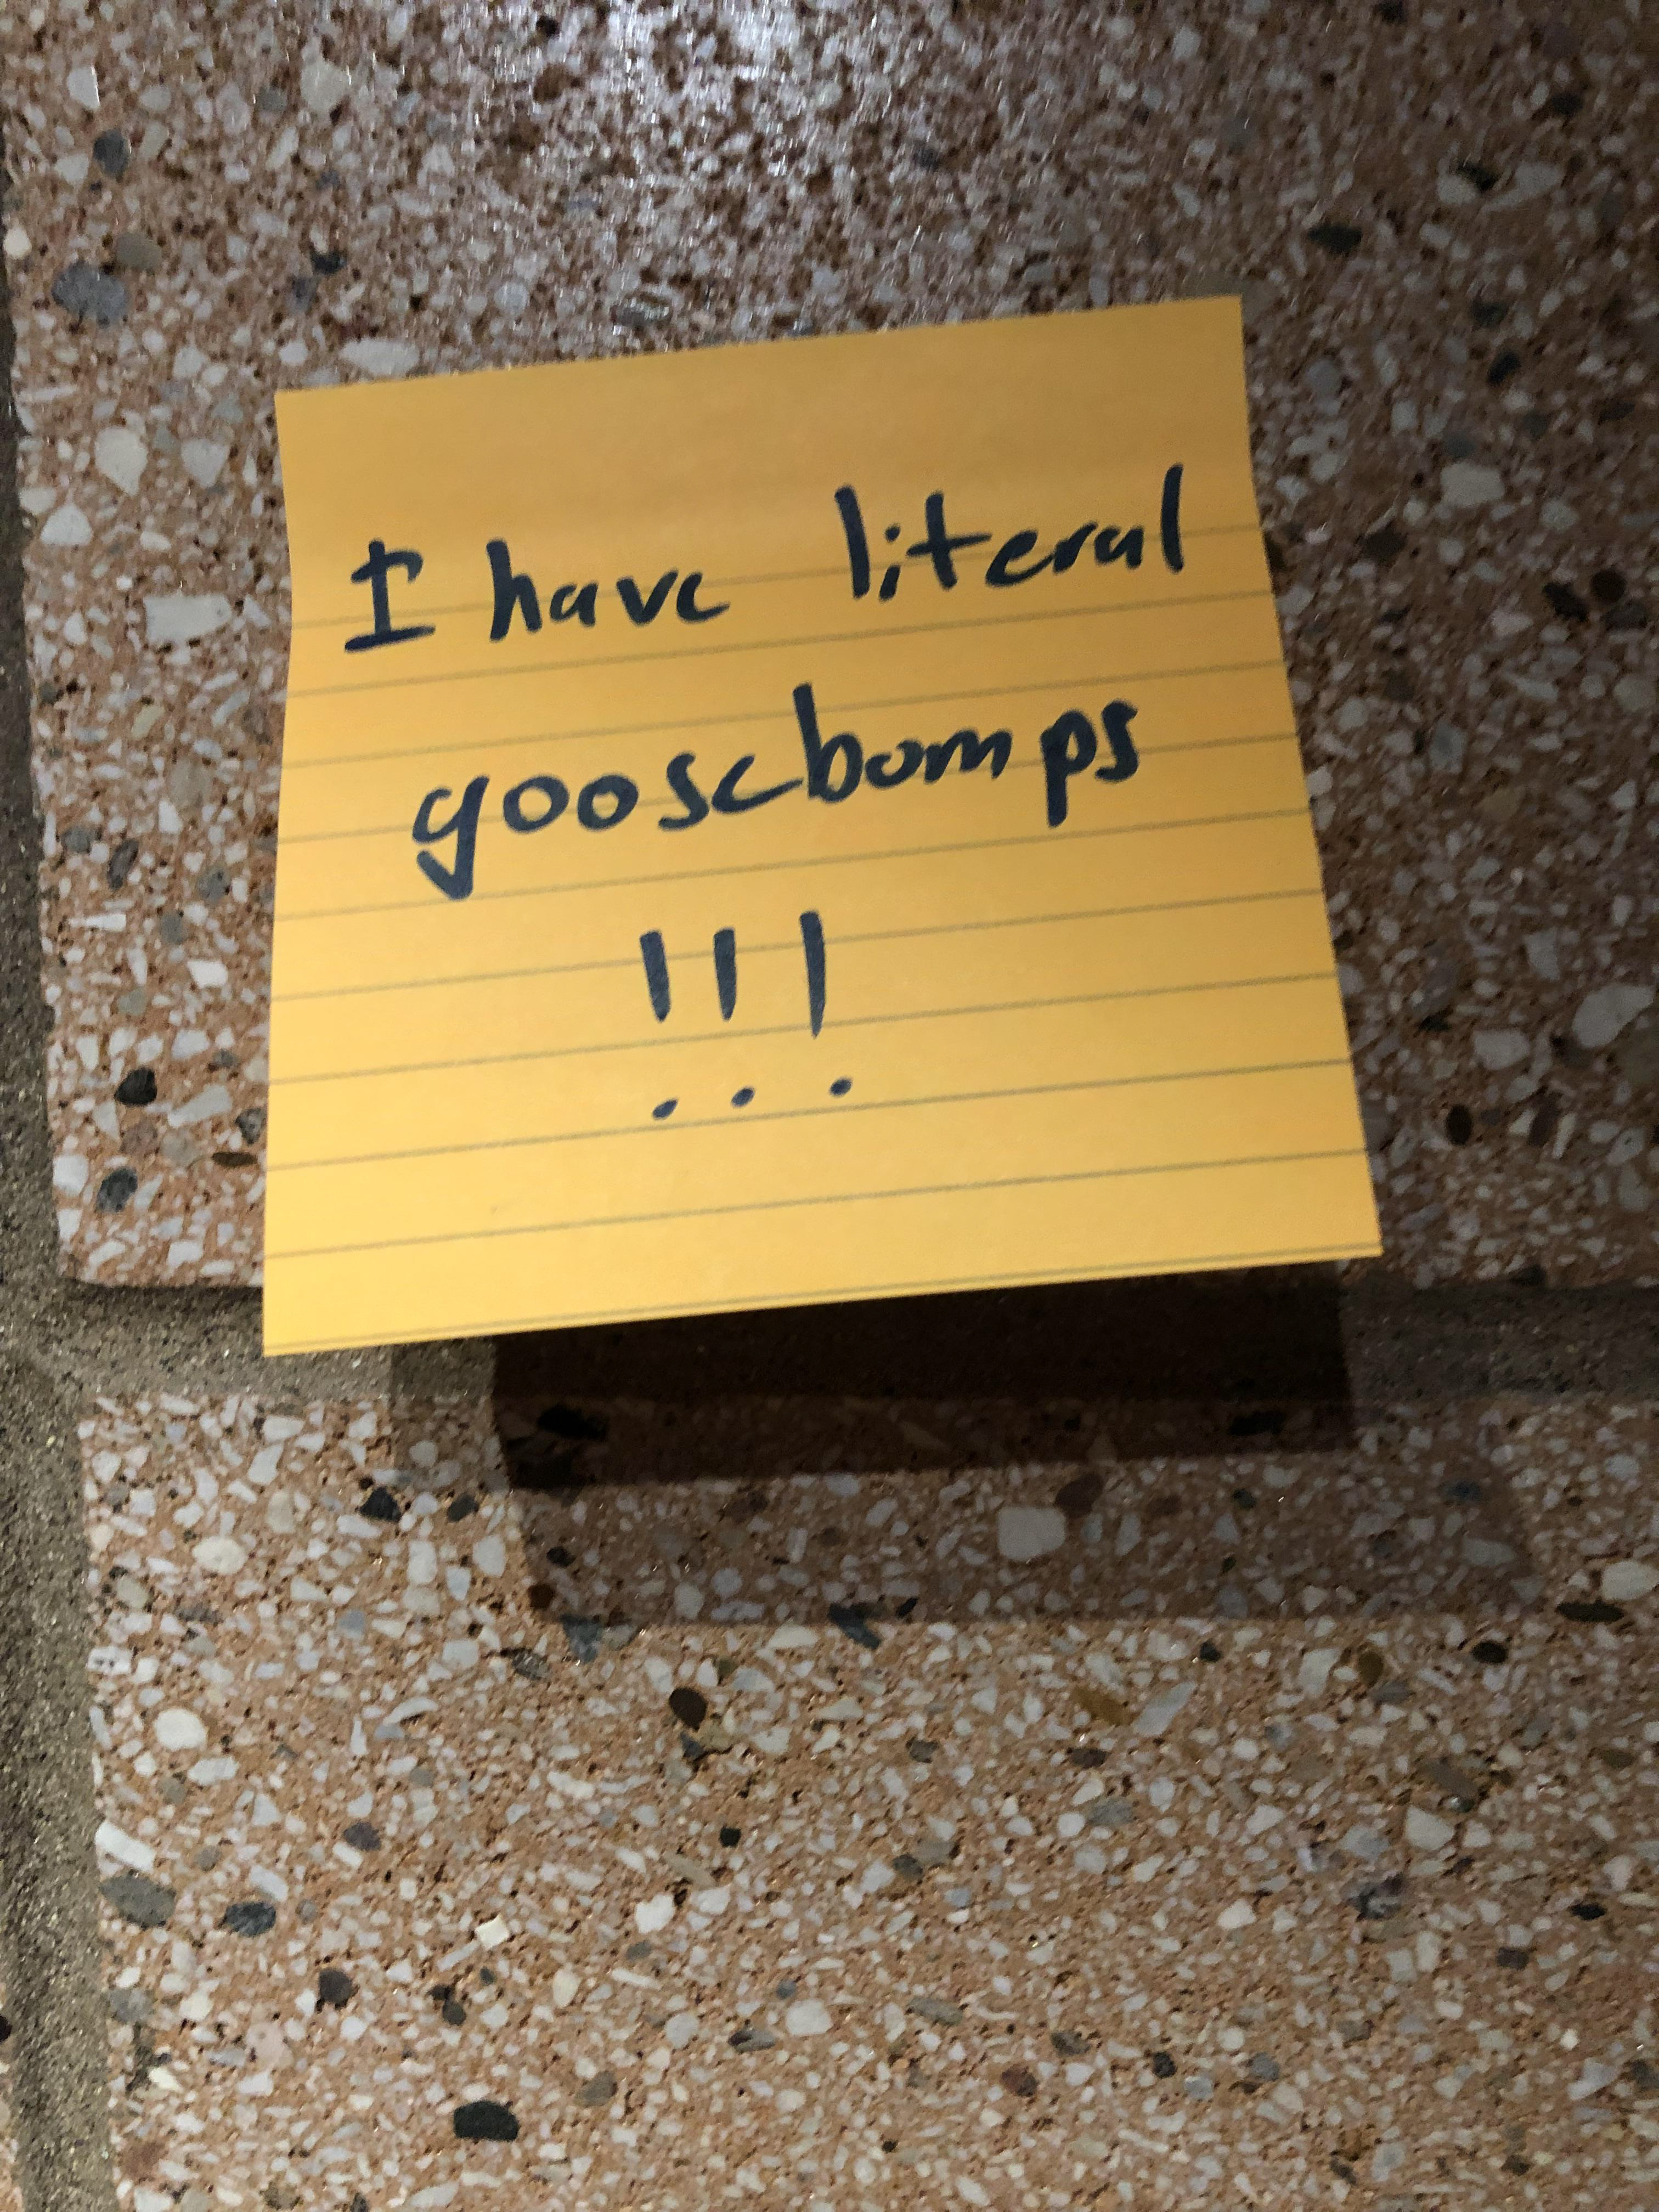 I have literal
goosebumps
!!!